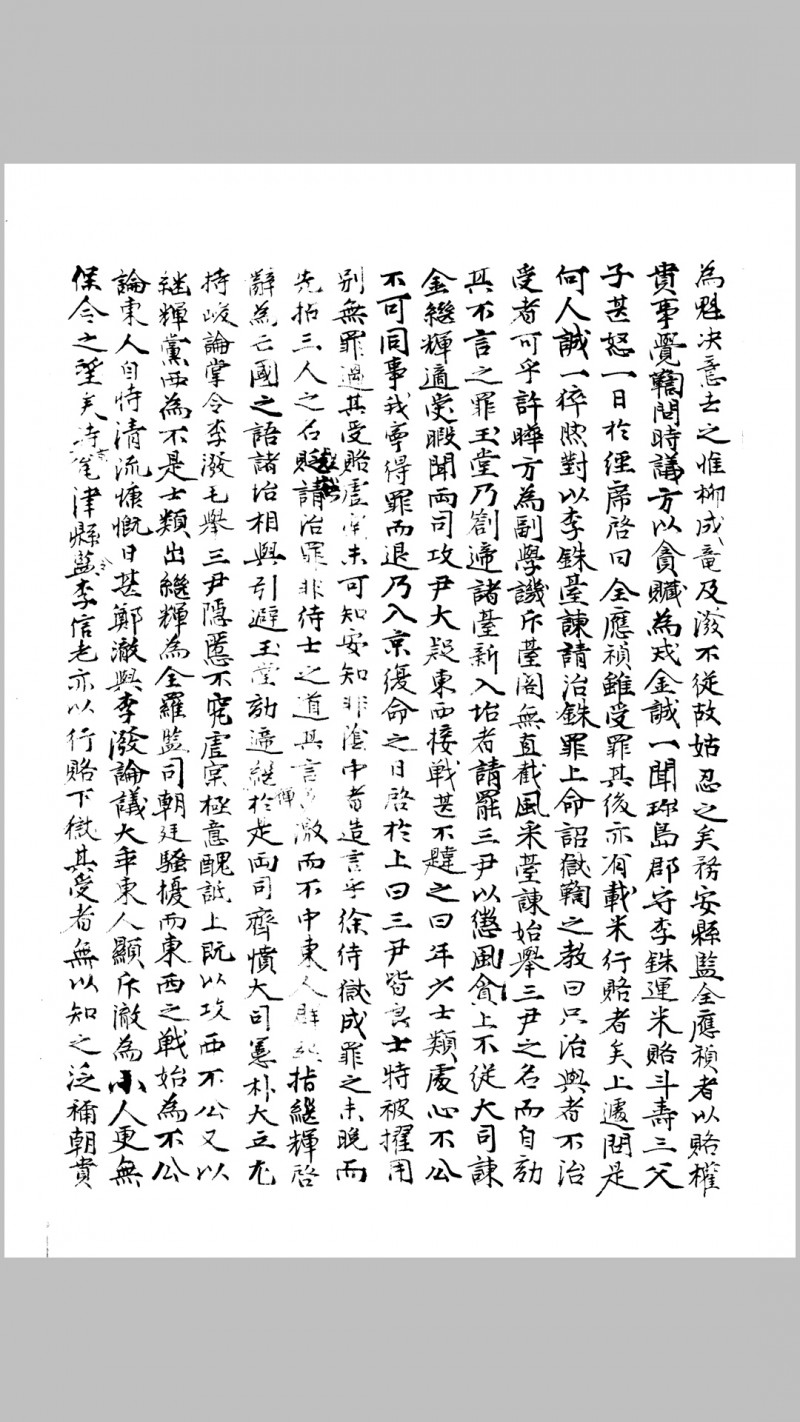 為魁決意去之惟柳成竜及潑不從故姑忍之矣務安縣監全應禎者以賂權
貴事覺鞫問時議方以貪贓為戒金誠一聞珎島郡守李銖運米賂斗壽三父
子甚怒一日於經席啓曰全應禎雖受罪其後亦有載米行賂者矣上遽問是
何人誠一猝然對以李銖臺諫請治銖罪上命詔獄鞫之教曰只治與者不治
受者可乎許曄方為副學譏斥臺閣無直截風采臺諫始舉三尹之名而自劾
其不言之罪玉堂乃箚遆諸臺新入坮者請罷三尹以懲風貪上不從大司諫
金継輝適受暇聞兩司攻尹大疑東西接戰甚不韙之曰年少士類處心不公
不可同事我寧得罪而退乃入京復命之日啓於上曰三尹皆良士特被擢用
別無罪過其受賂虛實未可知安知非陰中者造言乎徐待獄成罪之未晚而
先拈三人之名請治罪非待士之道其言激而不中東人群指継輝啓
辭為亡國之語諸治相與引避玉堂劾遆継輝於是両司齊憤大司憲朴大立尤
持峻論掌令李潑毛舉三尹隱慝不究虛實極意醜詆上既以攻西不公又以
継輝黨西為不是士類出継輝為全羅監司朝廷騷擾而東西之戦始為不公
論東人自恃清流慷慨日甚鄭澈與李潑論議大乖東人顯斥澈為小人更無
保合之望矣時津縣監李信老亦以行賂下獄其受者無以知之泛稱朝貴